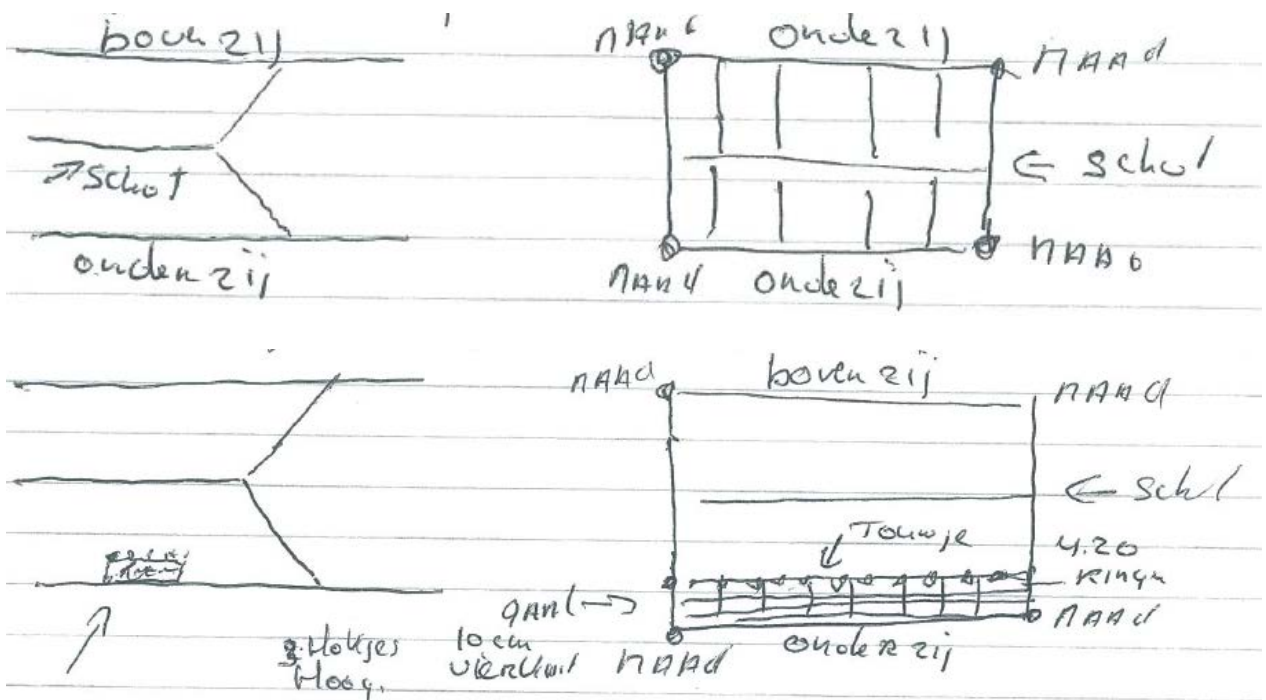 boven zij
schot
onder zij
NAAd
Ondezij
NAAd
← schot
NAAd
Ondezij
NAAd
NAAd
boven zij
NAAd
← schot
Touwje
4.20
Ringen
NAAd
3 Hokjes
Hoog.
10 cm
vierkant
NAAd
ondeRzij